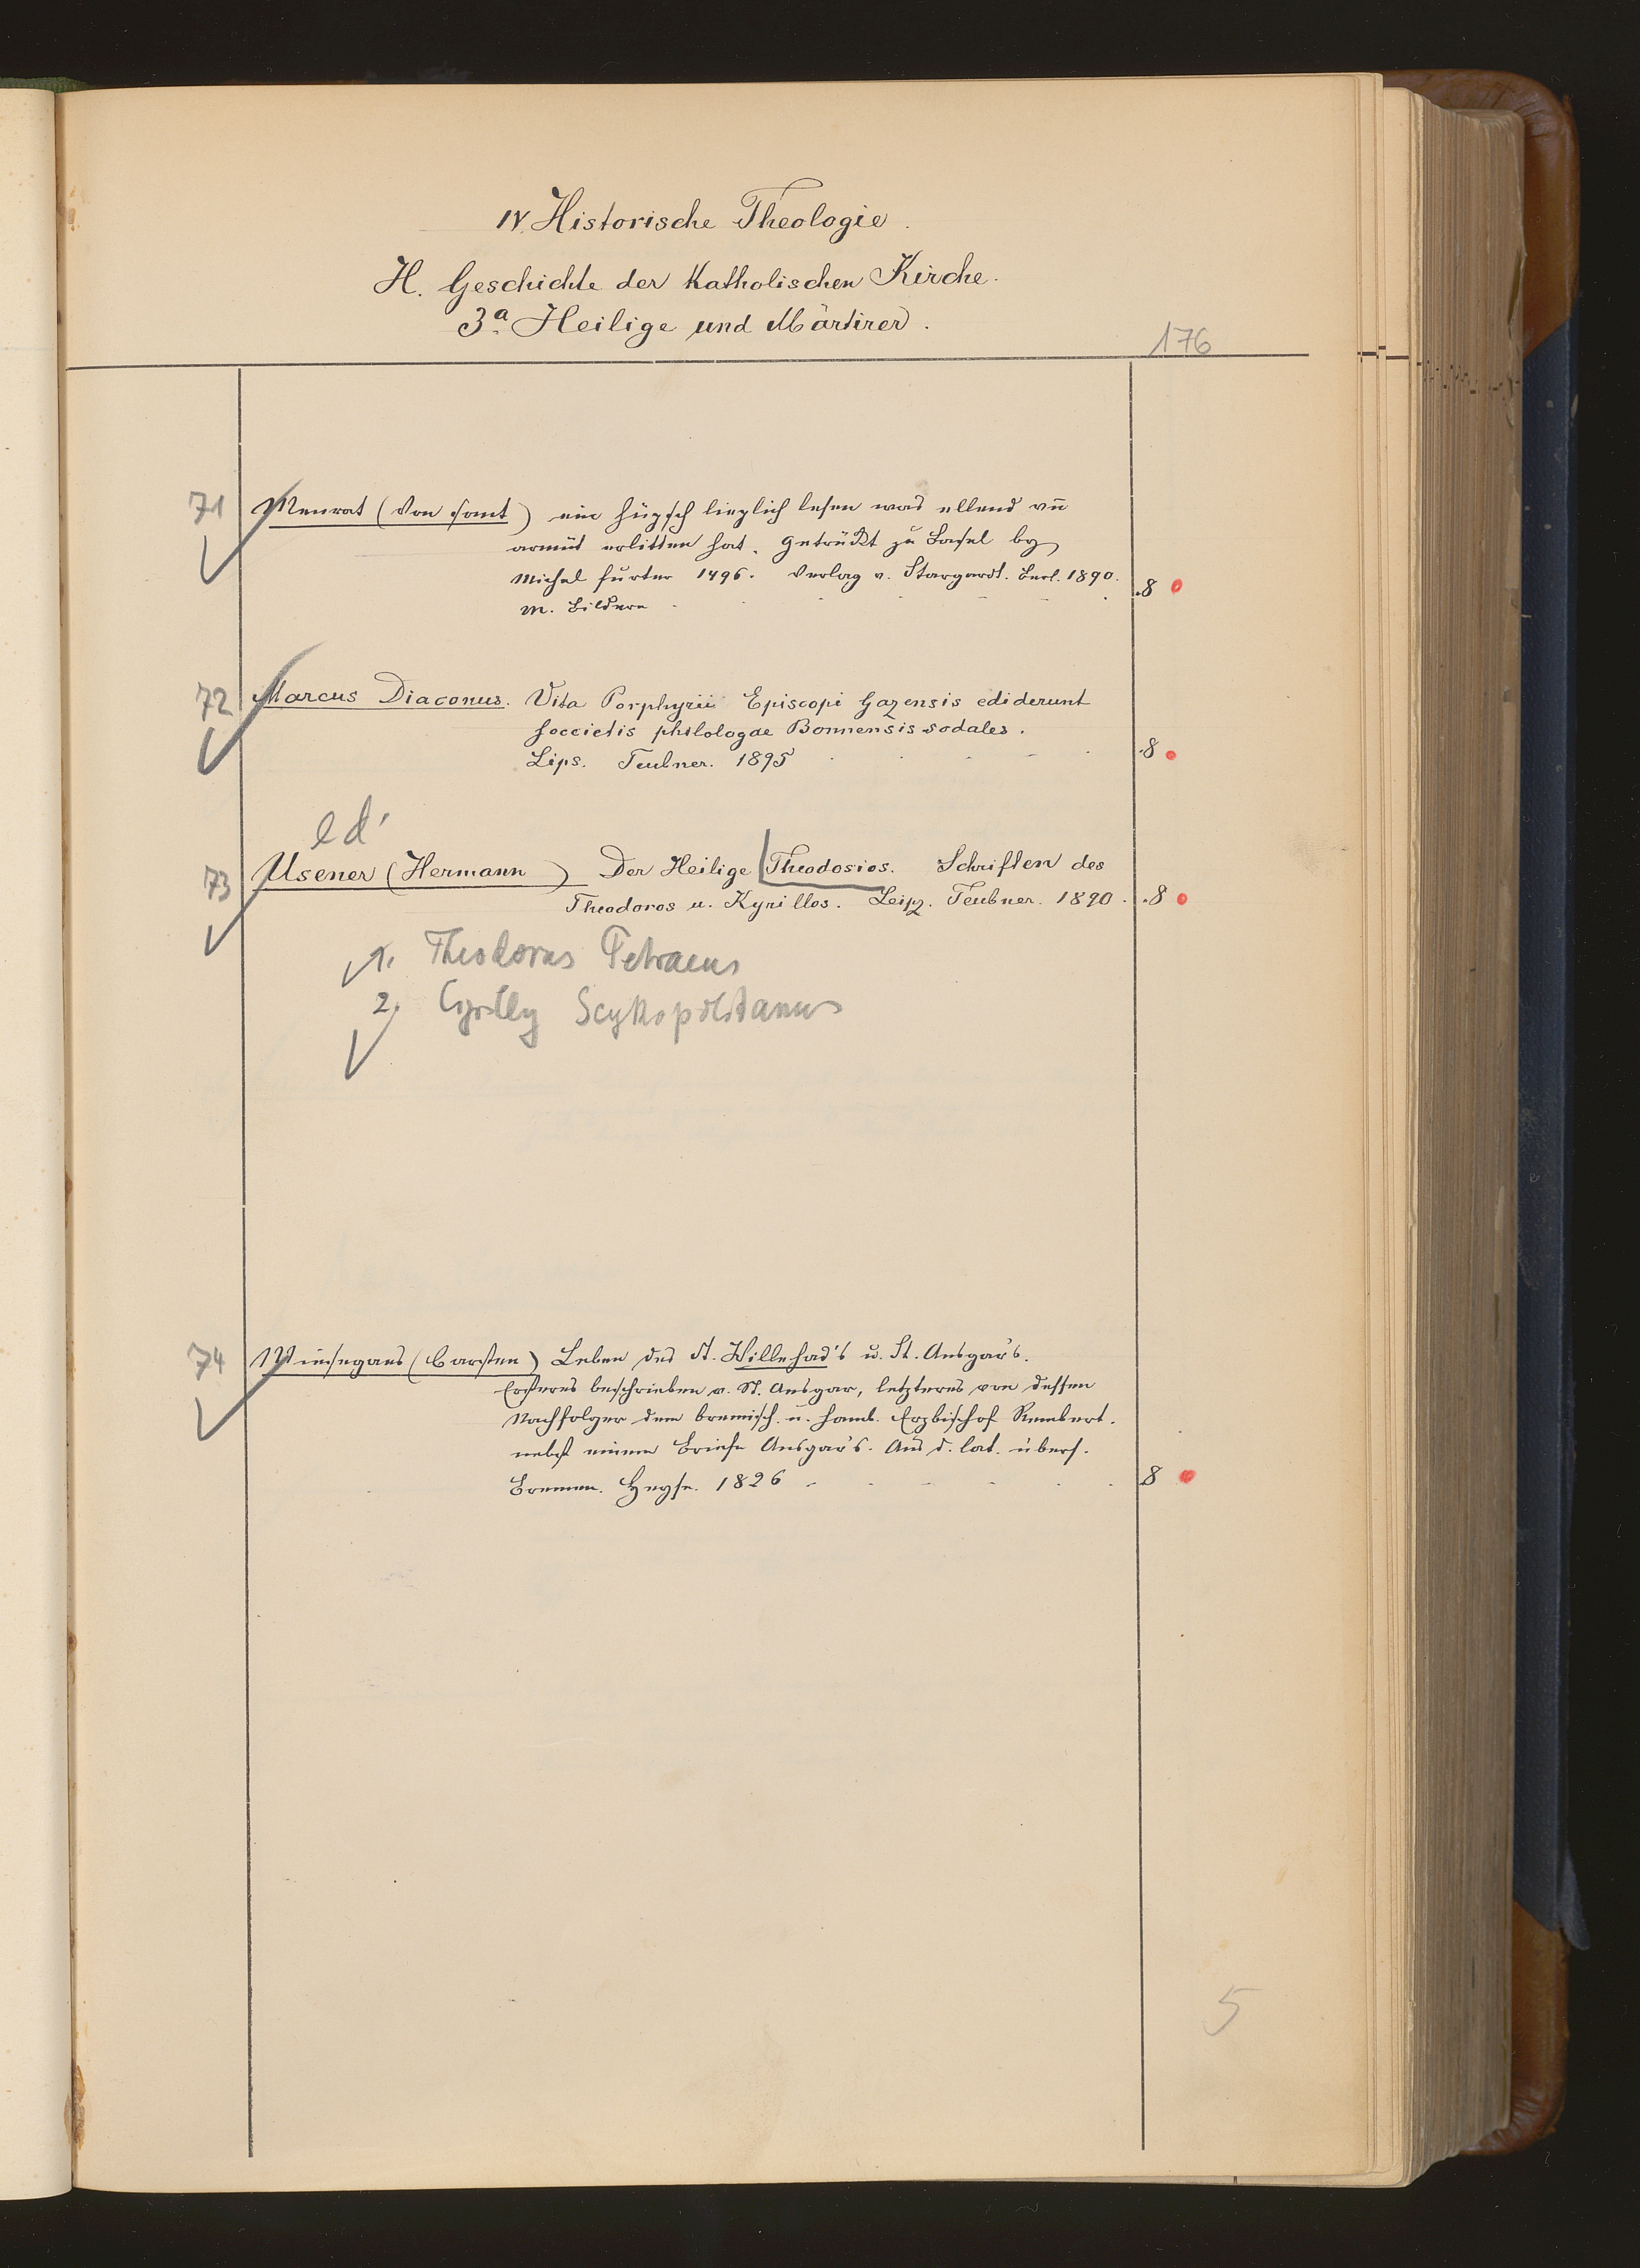 IV. Historische Theologie.
H. Geschichte der Katholischen Kirche.
3a. Heilige und Märtirer.
176
71 Menrat (Von sant) ein hüpsch lieplich lesen was ellend vn̄
armüt erlitten hat. Getrückt zu Basel by
Michel furter 1496. Verlag v. Stargardt. Berl. 1890.
m. Bildern . 8
72 Marcus Diaconus. Vita Porphyrii Episcopi Gazensis ediderunt
soccietis philologae Bonnensis sodales.
Lips. Teubner. 1895 . 8
ed.
73 Usener (Hermann) Der Heilige Theodosios. Schriften des
Theodoros u. Kyrillos. Leipz. Teubner. 1890. . 8
1. Theodorus Petraeus
2. Cyrillus Scythopolitanus
74 Miesegaes (Carsten) Leben des St. Willehad's u. St. Ansgar's.
Ersteres beschrieben v. St. Ansgar, letzteres von dessen
Nachfolger dem bremisch. u. hamb. Erzbischof Rembert.
nebst einem Briefe Ansgar's. Aus d. lat. übers.
Bremen. Heyse. 1826 . 8
5